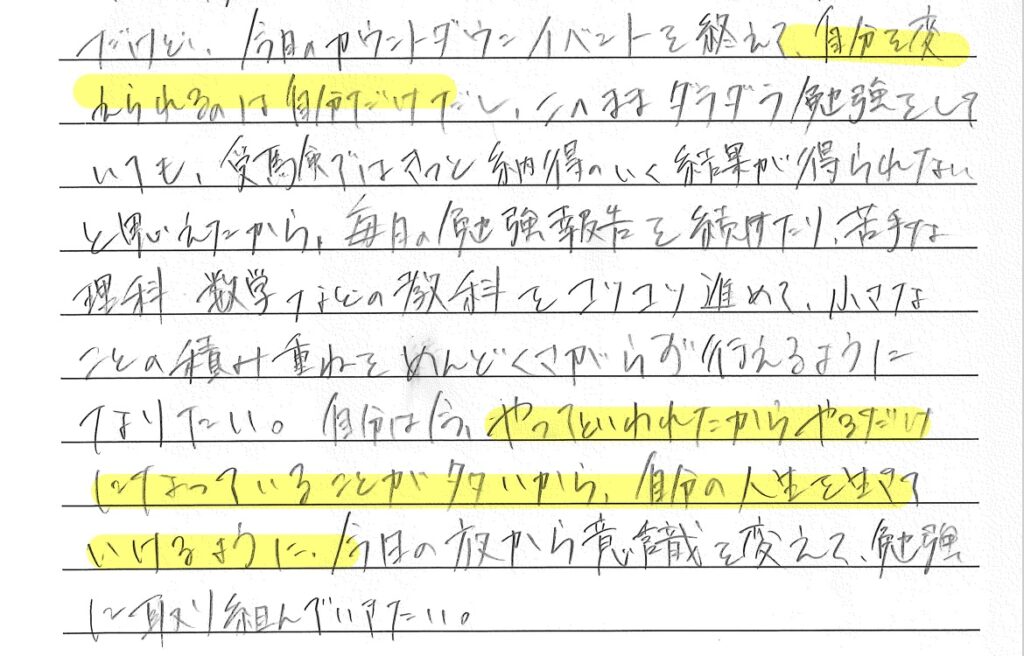 だけど、今日のカウントダウンイベントを終えて、自分を変
えられるのは自分だけだし、このままダラダラ勉強をして
いても、受験ではきっと納得のいく結果が得られない
と思えたから、毎月の勉強報告を続けたり、苦手な
理科 数学などの教科をコツコツ進めて、小さな
ことの積み重ねをめんどくさがらず行えるように
なりたい。自分は今、やってといわれたからやるだけ
になっていることが多いから、自分の人生を生きて
いけるように、今日の夜から意識を変えて、勉強
に取り組んでいきたい。